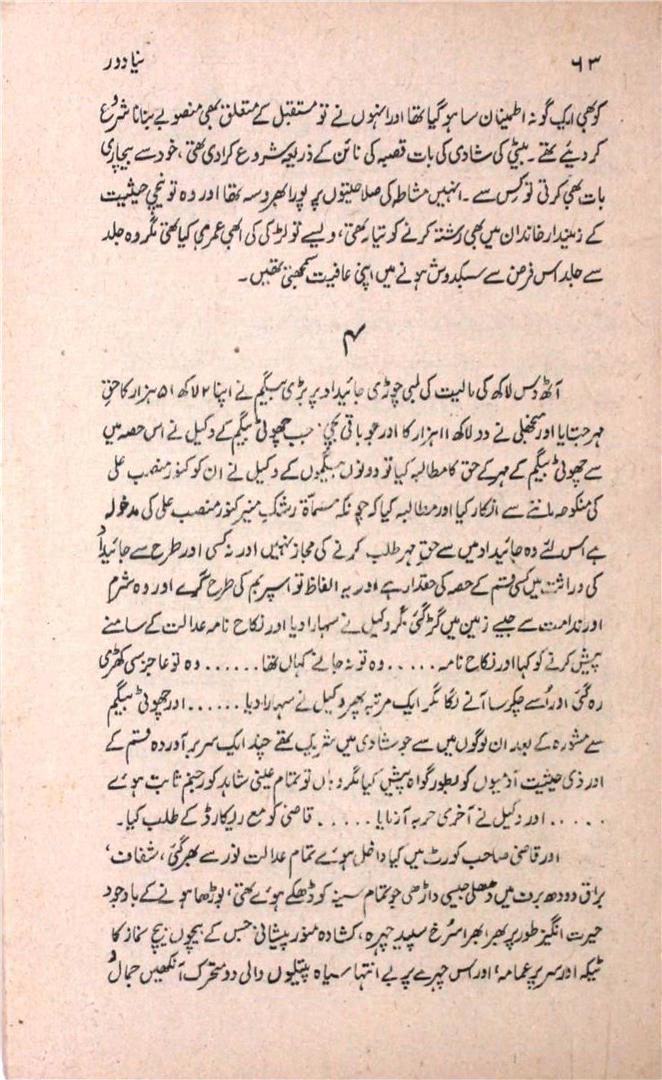 ۶۳ نیا دور
کو بھی ایک گونہ اطمینان سا ہو گیا تھا اور انہوں نے تو مستقبل کے متعلق بھی منصوبے بنانا شروع
کر دیئے تھے۔ بیٹی کی شادی کی بات قصبہ کی نائن کے ذریعہ شروع کرا دی تھی، خود سے بیچاری
بات بھی کرتی تو کس سے۔ انہیں مشاطہ کی صلاحیتوں پر پورا بھروسہ تھا اور وہ تو نیچی حیثیت
کے زمیندار خاندان میں بھی رشتہ کرنے کو تیار تھی، ویسے تو لڑکی کی ابھی عمر ہی کیا تھی مگر وہ جلد
سے جلد اس فرض سے سبکدوش ہونے میں اپنی عافیت سمجھتی تھیں۔
۴
آٹھ دس لاکھ کی مالیت کی لمبی چوڑی جائیداد پر بڑی بیگم نے اپنا ۲ لاکھ ۵۱ ہزار کا حق
مہر جتایا اور منجھلی نے دو لاکھ ۱۱ ہزار کا اور جو باقی بچی جب چھوٹی بیگم کے وکیل نے اس حصہ میں
سے چھوٹی بیگم کے مہر کے حق کا مطالبہ کیا تو دونوں بیگموں کے وکیل نے ان کو کنور منصب علی
کی منکوحہ ماننے سے انکار کیا اور مطالبہ کیا کہ چونکہ مسماۃ رشک منیر کنور منصب علی کی مدخولہ
ہے اس لئے وہ جائیداد میں سے حق مہر طلب کرنے کی مجاز نہیں اور نہ کسی اور طرح سے جائیداد
کی وراثت میں کسی قسم کے حصہ کی حقدار ہے اور یہ الفاظ تو اس پر بم کی طرح گرے اور وہ شرم
اور ندامت سے جیسے زمین میں گڑ گئی مگر وکیل نے سہارا دیا اور نکاح نامہ عدالت کے سامنے
پیش کرنے کو کہا اور نکاح نامہ ..... وہ تو نہ جانے کہاں تھا ...... وہ تو عاجز سی کھڑی
رہ گئی اور اُسے چکر سا آنے لگا مگر ایک مرتبہ پھر وکیل نے سہارا دیا ...... اور چھوٹی بیگم
سے مشورہ کے بعد ان لوگوں میں سے جو شادی میں شریک تھے چند ایک سربر آوردہ قسم کے
اور ذی حیثیت آدمیوں کو بطور گواہ پیش کیا مگر وہاں تو تمام عینی شاہد کور چشم ثابت ہوئے
..... اور وکیل نے آخری حربہ آزمایا ..... قاضی کو مع ریکارڈ کے طلب کیا۔
اور قاضی صاحب کورٹ میں کیا داخل ہوئے تمام عدالت نور سے بھر گئی، شفاف،
براق دودھ برف میں دھلی جیسی داڑھی جو تمام سینہ کو ڈھکے ہوئے تھی، بوڑھا ہونے کے باوجود
حیرت انگیز طور پر بھرا بھرا سرخ سپید چہرہ، کشادہ منور پیشانی جس کے بیچوں بیچ نماز کا
ٹیکہ اور سر پر عمامہ، اور اس چہرے پر بے انتہا سیاہ پتلیوں والی دو متحرک آنکھیں جمال و